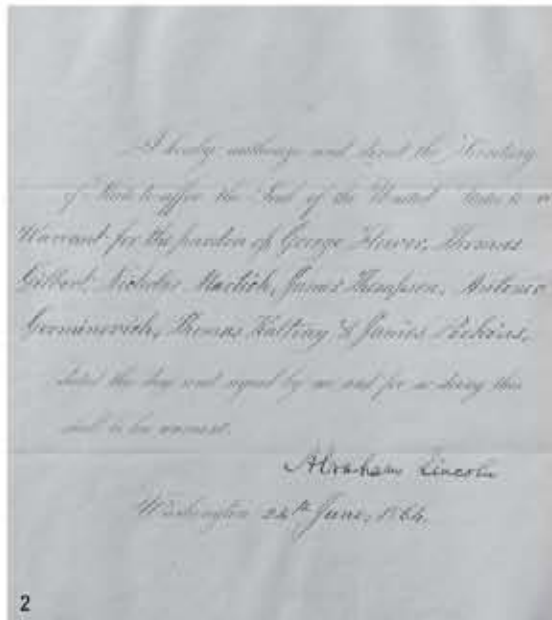 I hereby authorize and direct the Secretary
of State to affix the Seal of the United States to a
Warrant for the pardon of George Thomas
Gilbert, Nicholas James Thompson, Antonio
Thomas & James
dated this day and signed by me and for so doing this
shall be his warrant.
Abraham Lincoln
Washington 24th June, 1864.
2